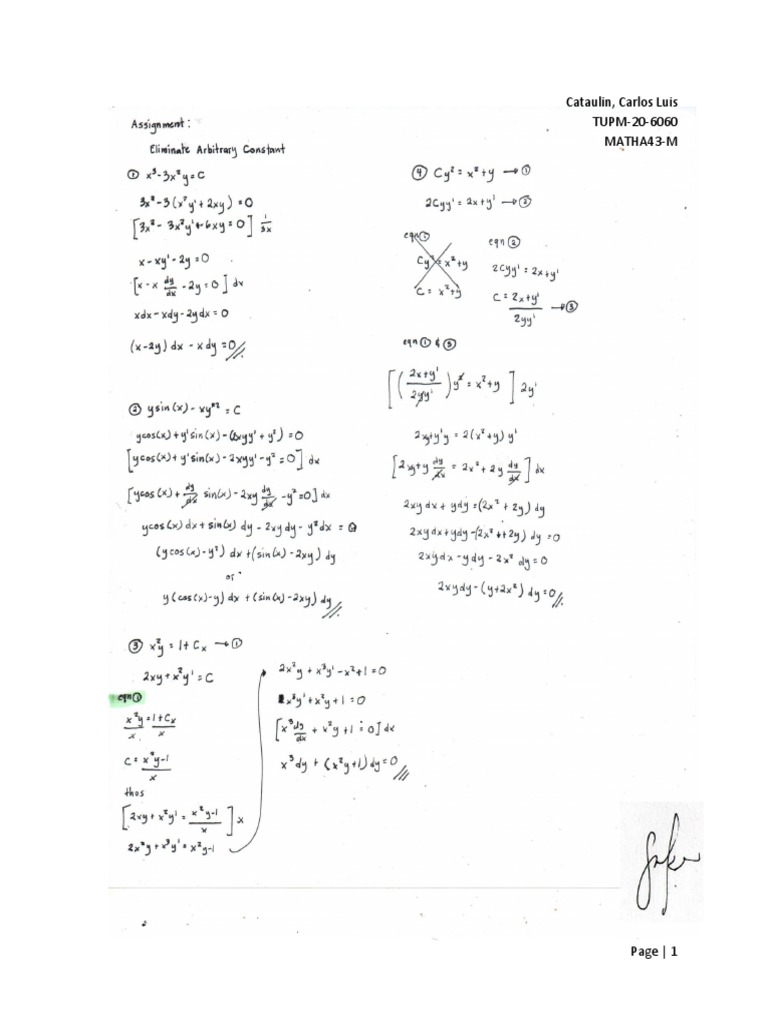 Cataulin, Carlos Luis
TUPM-20-6060
MATHA43-M
Assignment:
Eliminate Arbitrary Constant
① x³-3x²y=C
3x²-3(x²y'+2xy)=0
[3x²-3x²y'-6xy=0] 1/3x
x-xy'-2y=0
[x-x dy/dx -2y=0] dx
xdx-xdy-2ydx=0
(x-2y)dx-xdy=0//
② ysin(x)-xy²=C
ycos(x)+y'sin(x)-(2xyy'+y²)=0
[ycos(x)+y'sin(x)-2xyy'-y²=0] dx
[ycos(x)+dy/dx sin(x)-2xy dy/dx -y²=0] dx
ycos(x)dx+sin(x)dy-2xydy-y²dx=0
(ycos(x)-y²)dx+(sin(x)-2xy)dy
or
y(cos(x)-y)dx+(sin(x)-2xy)dy//
③ x²y=1+Cx →①
2xy+x²y'=C
eqn①
x²y/x=1+Cx/x
C=x²y-1/x
thus
[2xy+x²y'=x²y-1/x] x
2x²y+x³y'=x²y-1
2x²y+x³y'-x²+1=0
x³y'+x²y+1=0
[x³dy/dx+x²y+1=0] dx
x³dy+(x²y+1)dy=0//
④ Cy²=x²+y →①
2Cyy'=2x+y' →②
eqn①
Cy²=x²+y
C=x²+y
eqn②
2Cyy'=2x+y'
C=2x+y'/2yy' →③
eqn①&③
[(2x+y'/2yy')y²=x²+y] 2y'
2xy+y'y=2(x²+y)y'
[2xy+y dy/dx=2x²+2y dy/dx] dx
2xydx+ydy=(2x²+2y)dy
2xydx+ydy-(2x²+2y)dy=0
2xydx-ydy-2x²dy=0
2xydy-(y+2x²)dy=0//
Page | 1